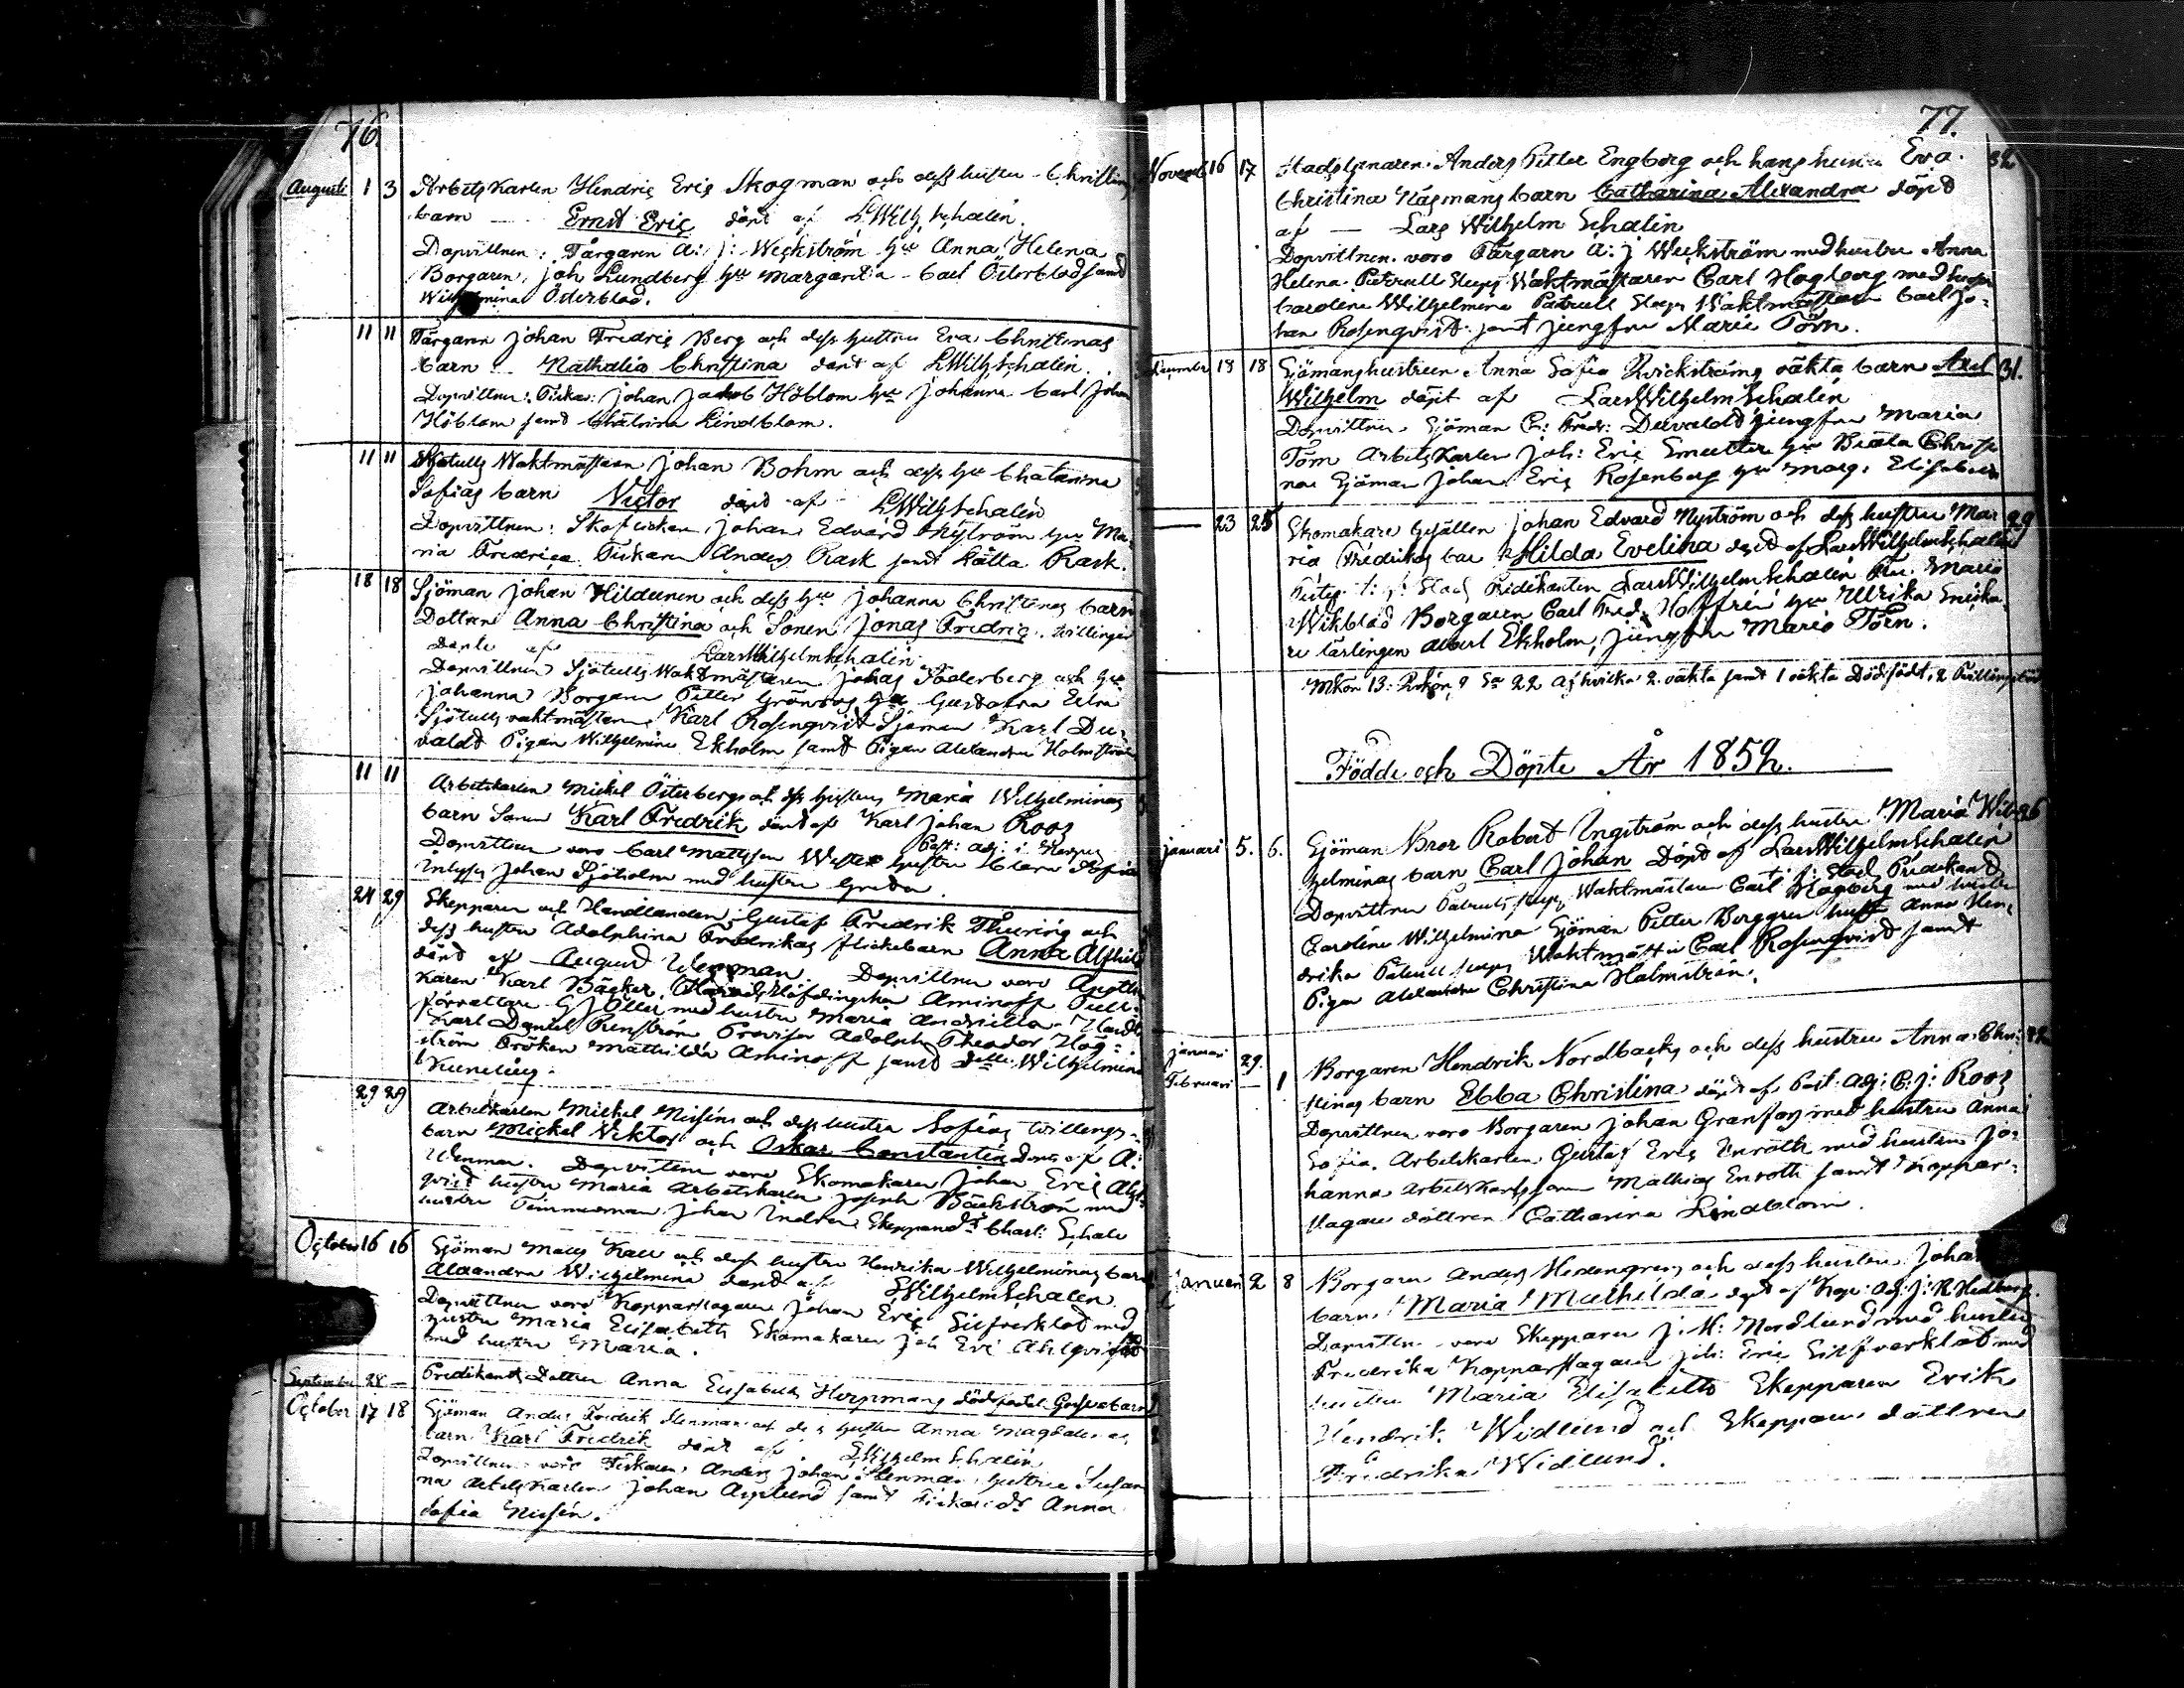 76.
Augusti 1 3 Arbets Karlen Hendric Eric Skogman och dess hustru Christinas
barn Ernst Eric döpt af LWilh Schalin.
Dopvittnen: Färgaren A: J: Weckström hu Anna Helena
Borgaren Joh Lundberg hu Margareta Carl Österblad samt
Wilhelmina Österblad.
11 11 Färgaren Johan Fredric Berg och dess hustru Eva Christinas
barn Nathalia Christina döpt af LWilhSchalin.
Dopvittnen: Johan Jakob Höblom hu Johanna Carl Johan
Höblom samt Chatrina Lindblom.
11 11 Waktmästaren Johan Bohm och dess hu Chatarina
Sofias barn Victor döpt af LWilhSchalin
Dopvittnen: Johan Edvard Nyström hu Ma-
ria Fredrica Fiskaren Anders Rask samt Lätta Rask.
18 18 Sjöman Johan Hildeenen och dess hu Johanna Christinas barn
Dottren Anna Christina och Sonen Jonas Fredric. Tvillingar
döpte af LarsWilhelmSchalin
Dopvittnen Sjötulls Waktmästaren Johan Söderberg och hu
Johanna Borgaren Petter Grönroos hu Gustafva
Sjötulls vaktmästaren Karl Rosenqvist Sjöman Karl Du-
vald Pigan Wilhelmina Ekholm samt Pigan Alexandra Holmström
11 11 Arbetskarlen Mickel Österbergs och dess hustrus Maria Wilhelminas
barn Sonen Karl Fredrik döpt af Karl Johan Roos
Past: adj: i
Dopvittnen voro Carl Mattsson hustru Clara Sofia
Johan Sjöholm med hustru Greta.
24 29 Skepparen och Handlanden Gustaf Fredrik Thuring och
dess hustru Adolphina Fredrikas flickebarn Anna Alfhild
döpt af August Wenman. Dopvittnen voro Apothe-
karen Karl Bäcker, Aminoff Tull-
förvaltare G J Öller med hustru Maria
Karl Daniel Renström Provisor Adolph Theodor Hög-
ström Fröken Mathilda Aminoff samt Wilhelmina
29 29 Arbetskarlen Mickel Nissens och dess hustru Sofias tvillings-
barn Mickel Viktor och Oskar Constantin döpt af A:
Wenman. Dopvittnen voro Skomakaren Johan Eric Ahl-
qvist hustru Maria Arbetskarlen Joseph Bäckström med
hustru Timmerman Johan Skeppared: Charl: Schale
October 16 16 Sjöman Matts Kall och dess hustru Henrika Wilhelminas barn
Alexandra Wilhelmina döpt af LWilhelmSchalin
Dopvittnen voro Kopparslagaren Johan Eric Silfverklad med
hustru Maria Elisabeth Skomakaren Joh Eric Ahlqvist
med hustru Maria.
September 28 — Predikants Dottren Anna Elisabeth Herpmans dödfödt Gossebarn
October 17 18 Sjöman Anders Fredrik Stenman och dess hustru Anna Magdalenas
barn Karl Fredrik döpt af LWilhelm Schalin
Dopvittnen voro Fiskaren Anders Johan Stenman hustru Susan
na Arbetskarlen Johan Asplund samt Anna
Sofia Nissén.
77.
Novemb 16 17 Anders Petter Engberg och hans hustru Eva 32
Christina Hägmans barn Catharina Alexandra döpt
af — Lars Wilhelm Schalin
Dopvittnen voro Färgarn A: J Weckström med hustru Anna
Helena. Waktmästaren Carl Hagberg med hustru
Carolina Wilhelmina Waktmästaren Carl Jo-
han Rosenqvist samt Jungfru Maria Törn.
December 18 18 Sjömanshustrun Anna Sofia Qvickströms oäkta barn Axel 31.
Wilhelm döpt af LarsWilhelmSchalin
Dopvittnen Sjöman C: Fred: Duvaldt Jungfru Maria
Törn Arbets Karlen Joh: Eric Smutter hu Beata Christi
na Sjöman Johan Eric Rosenberg hu Marg: Elisabeth
— 23 25 Skomakare Gesällen Johan Edvard Nyström och dess hustru Ma 29
ria Fredrikas bar Hilda Evelina döpt af LarsWilhelmSchalin
Stads Predikanten LarsWilhelmSchalin Maria
Wikblad Borgaren Carl Fred: Hoffrén hu Ulrika Snicka-
re lärlingen Albert Ekholm, Jungfru Maria Törn.
Mkön 13: Qvkön 9 Sa 22 af hvilka 2 oäkta samt 1 oäkta Dödfödt, 2
Födde och Döpte År 1852.
Januari 5. 6. Sjöman Bror Robert Ingström och dess hustru Maria Wil- 26
helminas barn Carl Johan Döpt af LarsWilhelmSchalin
Stads Predikant
Dopvittnen Waktmästaren Carl Hagberg med hustru
Carolina Wilhelmina Sjöman Petter Berggren hust Anna Hen-
drika Waktmästaren Carl Rosenqvist samt
Pigan Alexandra Christina Holmström.
Januari 29.
Februari — 1 Borgaren Hendrik Nordbacks och dess hustru Anna Chri-
stinas barn Ebba Christina döpt af Past: Adj: C: J: Roos
Dopvittnen voro Borgaren Johan Granfors med hustru Anna
Sofia. Arbetskarlen Gustaf Eric Enroth med hustru Jo-
hanna Arbetskarls sonen Mathias Enroth samt Koppar-
slagare döttren Catharina Lindblom.
Januari 2 8 Borgaren Anders Hedengrens och dess hustru Joha
barn Maria Mathilda döpt af Kapl: Adj: J: R Hedberg.
Dopvittnen voro Skepparen J. M: Nordlund med hustru
Fredrika Kopparslagaren Joh: Eric Silfverklad med
hustru Maria Elisabeth Skepparen Erik
Hendrik Widlund och Skeppare döttren
Fredrika Widlund.